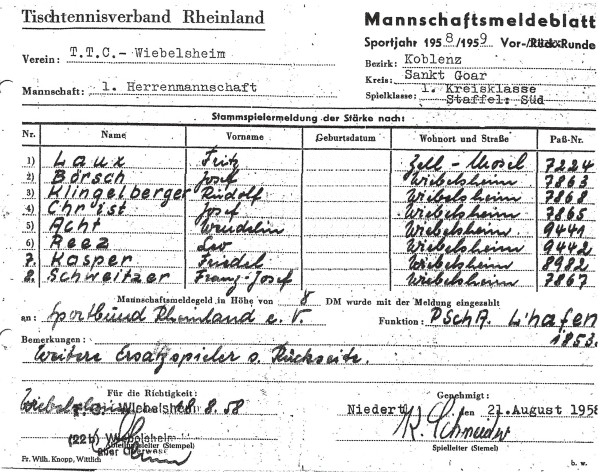 Tischtennisverband Rheinland
Mannschaftsmeldeblatt
Sportjahr 1958/1959 Vor-/Rück-Runde
Verein: T.T.C.- Wiebelsheim
Bezirk: Koblenz
Kreis: Sankt Goar
Mannschaft: 1. Herrenmannschaft
Spielklasse: 1. Kreisklasse
Staffel: Süd
Stammspielermeldung der Stärke nach:
Nr. Name Vorname Geburtsdatum Wohnort und Straße Paß-Nr.
1) Laux Fritz Zell - Mosel 7224
2) Börsch Josef Wiebelsheim 7863
3) Klingelberger Rudolf Wiebelsheim 7868
4) Christ Josef Wiebelsheim 7865
5) Acht Wendelin Wiebelsheim 9441
6) Reez Leo Wiebelsheim 9442
7. Kasper Friedel Wiebelsheim 8982
8. Schweitzer Franz-Josef Wiebelsheim 7867
Mannschaftsmeldegeld in Höhe von 8 DM wurde mit der Meldung eingezahlt
an: Sportbund Rheinland e. V. Funktion: PSchA. L'hafen
1853.
Bemerkungen:
Weitere Ersatzspieler s. Rückseite.
Für die Richtigkeit:
Genehmigt:
Wiebelsheim 18.8.58
Wiebelsheim
den 21. August 1958
(22b) Wiebelsheim
Abteilungsleiter (Stempel)
über Oberwesel
K. Schneider
Spielleiter (Stempel)
Fr. Wilh. Knopp, Wittlich
b. w.